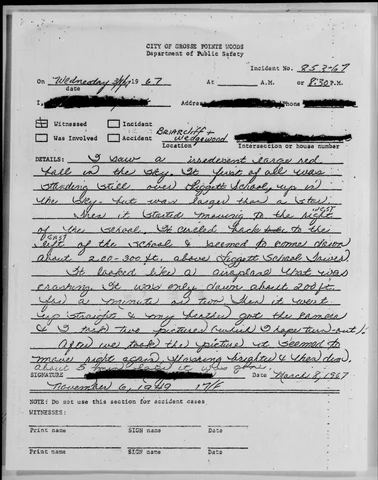 CITY OF GROSSE POINTE WOODS
Department of Public Safety
Incident No. 853-67
On Wednesday 3/8/ 1967 At A.M. or 8:30 P.M.
date
I, Address Phone
Witnessed Incident
Was Involved Accident Briarcliff + Wedgewood
Location Intersection or house number
DETAILS: I saw a irredecent large red
ball in the sky. It first of all was
standing still over Liggett School, up in
the sky, but was larger than a star.
Then it started moving to the right WEST
of the school. It circled back to the
(EAST left of the school & seemed to come down
about 200-300 ft. above Liggett School Tower
It looked like a airoplane that was
crashing. It was only down about 200 ft.
for a minute or two then it went
up straight & my brother got the camera
& I took two pictures (which I hope turn-out).
After we took the picture it seemed to
move right again. Flashing brighter & then dim.
about 5 later it was gone.
SIGNATURE Date March 8, 1967
November 6, 1949 17/F
NOTE: Do not use this section for accident cases
WITNESSES:
Print name SIGN name
Print name SIGN name
Print name SIGN name